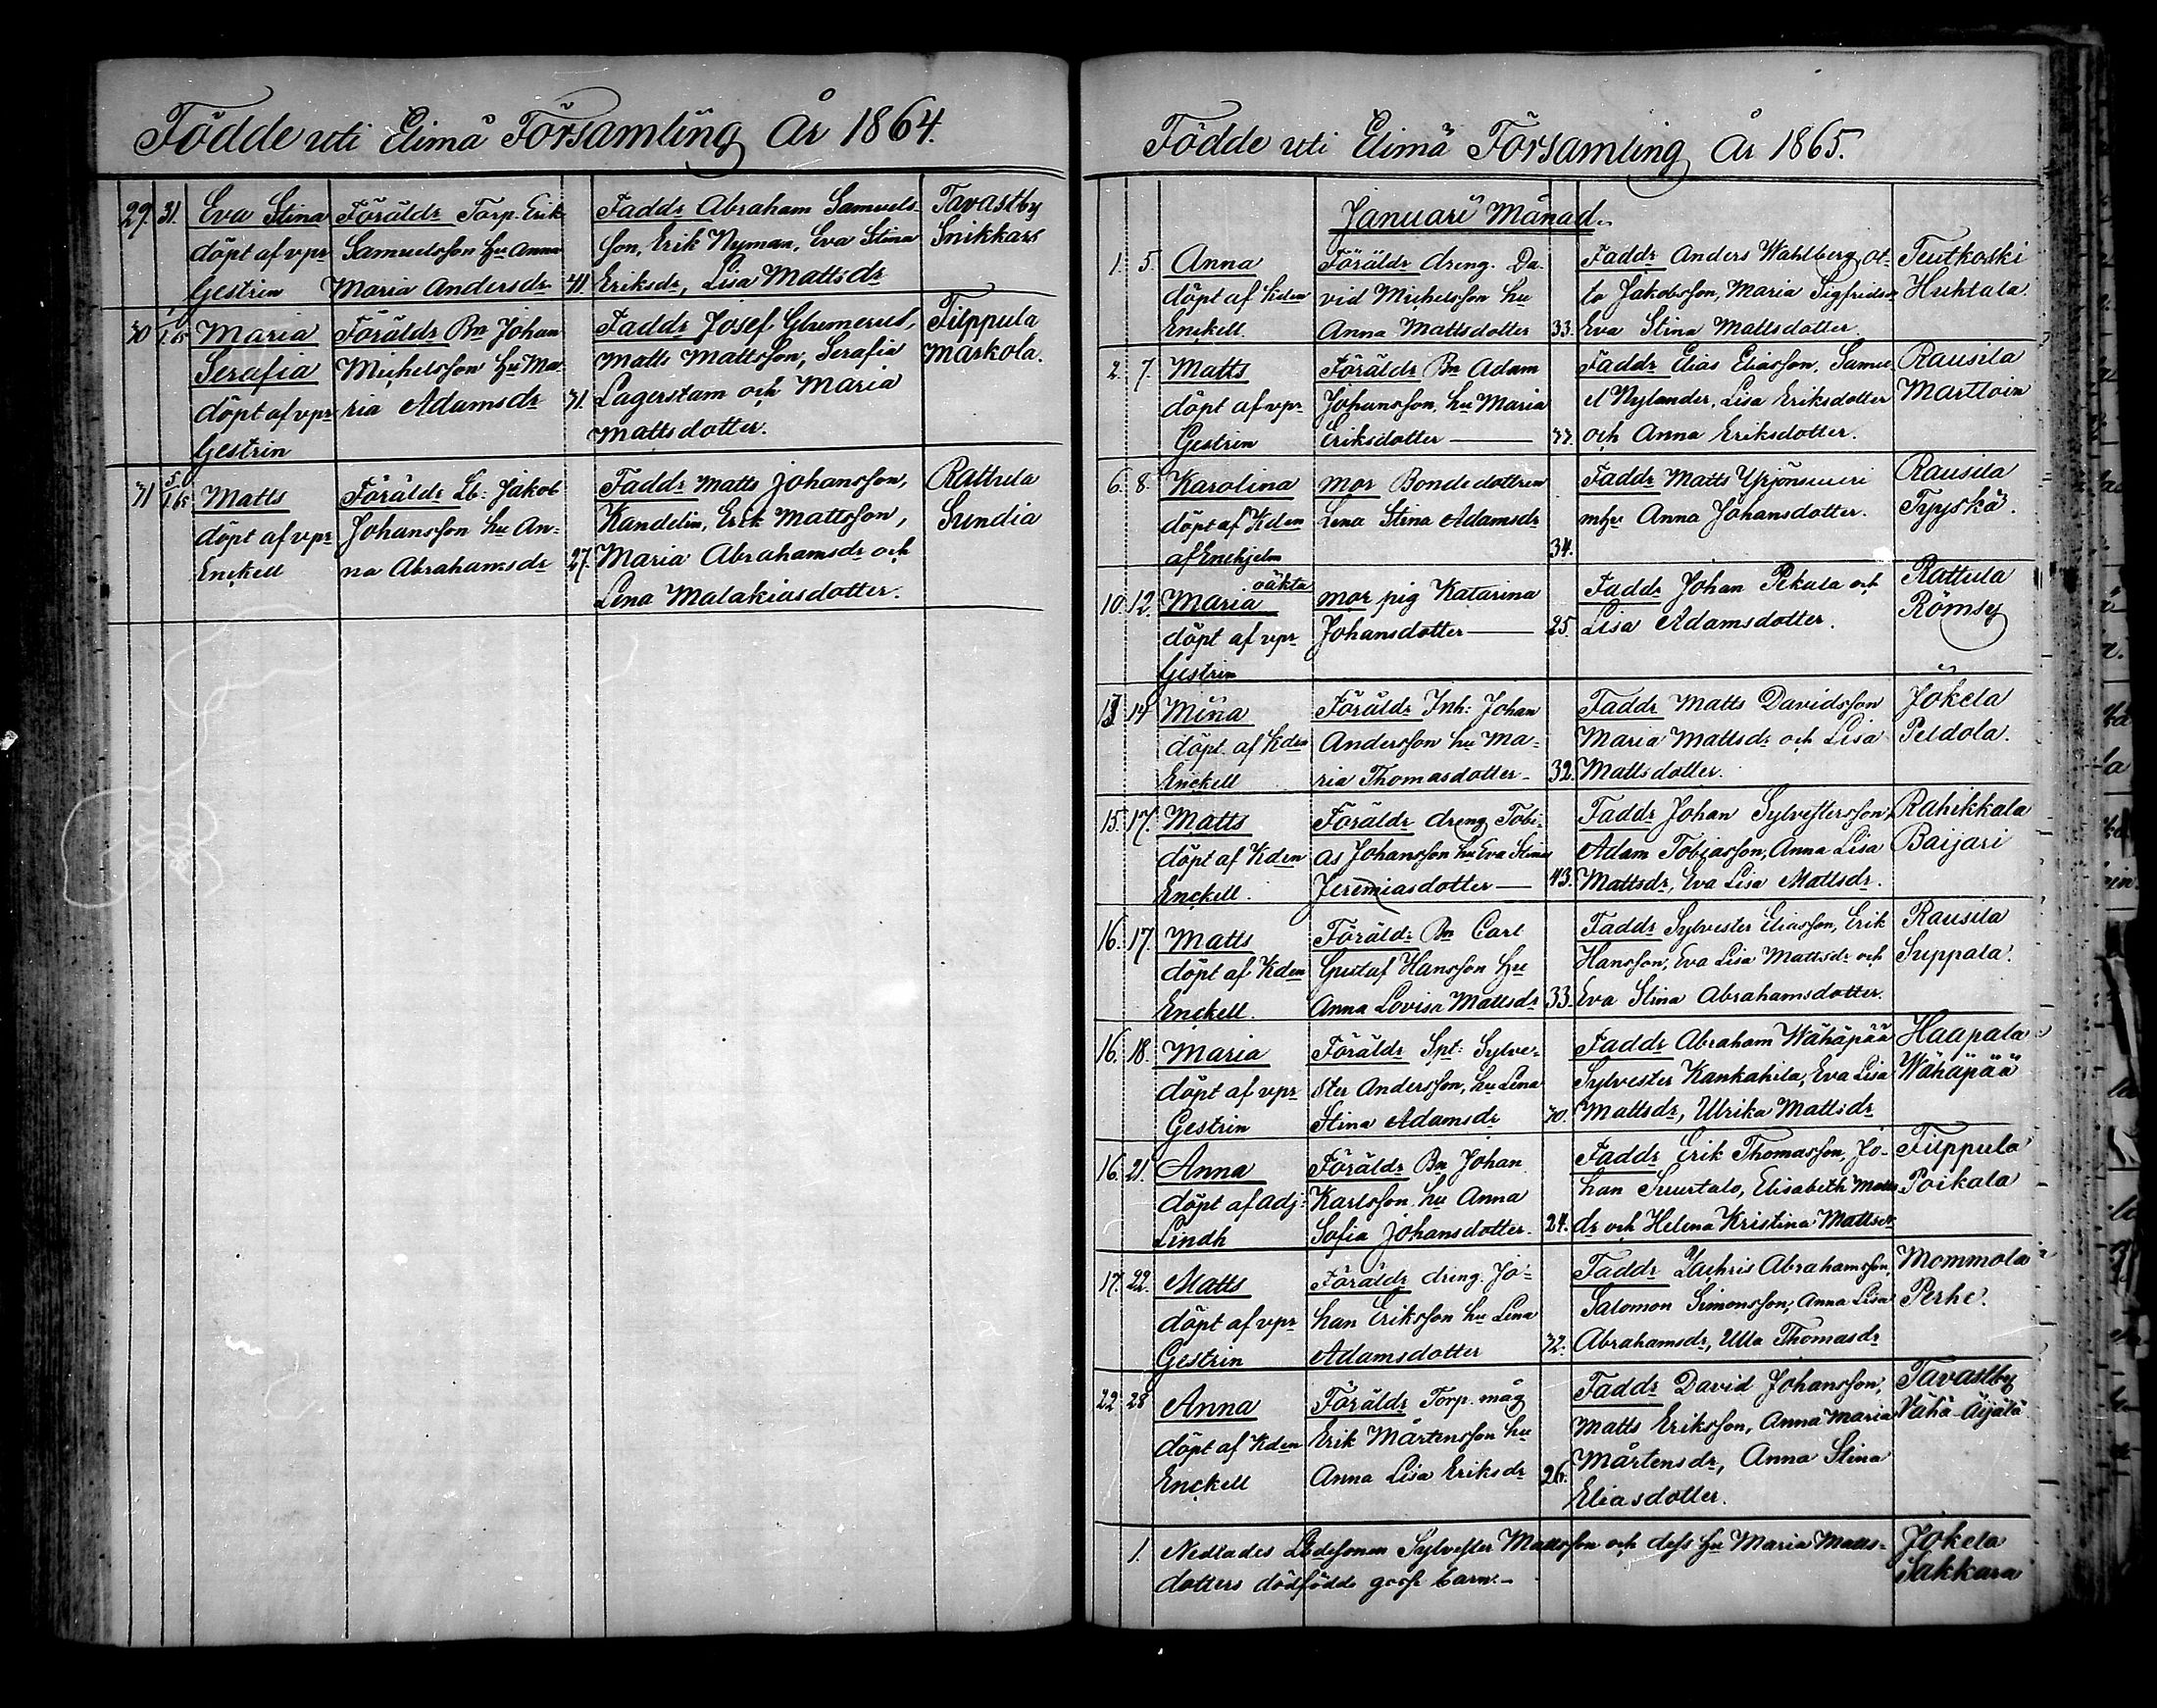 Födde uti Elimä Församling År 1864.
29. 31. Eva Stina Föräldr Torp. Erik Faddr Abraham Samuels- Tavastby
döpt af vpr Samuelsson hu Anna son, Erik Nyman, Eva Stina Snikkars
Gestrin Maria Andersdr 41. Eriksdr, Lisa Mattsdr
30 1.65 Maria Föräldr Bn Johan Faddr Josef Glumerus, Filppula
Serafia Michelsson hu Ma- Matts Mattsson, Serafia Markola.
döpt af vpr ria Adamsdr 31. Lagerstam och Maria
Gestrin Mattsdotter.
31 5 1.65 Matts Föräldr Lb: Jakob Faddr Matts Johansson, Rattula
döpt af vpr Johansson hu An- Kandelin, Erik Mattsson, Sundia
Enckell na Abrahamsdr 27. Maria Abrahamsdr och
Lena Malakiasdotter.
Födde uti Elimä Församling År 1865.
Januari Månad.
1. 5. Anna Föräldr dreng. Da- Faddr Anders Wahlberg, Ot- Teutkoski
döpt af Kden vid Michelsson hu to Jakobsson, Maria Sigfridsdr Huhtala.
Enckell. Anna Mattsdotter 33. Eva Stina Mattsdotter.
2. 7. Matts Föräldr Bn Adam Faddr Elias Eliasson, Samu- Rausila
döpt af vpr Johansson, hu Maria el Nylander, Lisa Eriksdotter Marttoin
Gestrin Eriksdotter 33. och Anna Eriksdotter.
6. 8. Karolina mor Bondedottren Faddr Matts Yrjönsuuri Rausila
döpt af Kden Lena Stina Adamsdr mhu Anna Johansdotter. Tyyskä.
af Enehjelm 34.
oäkta
10. 12. Maria mor pig Katarina Faddr Johan Pekala och Rattula
döpt af vpr Johansdotter 25. Lisa Adamsdotter. Römsy
Gestrin
13 14 Mina Föräldr Inh: Johan Faddr Matts Davidsson Jokela
döpt af Kden Andersson hu Ma- Maria Mattsdr och Lisa Peldola.
Enckell ria Thomasdotter 32. Mattsdotter.
15. 17. Matts Föräldr dreng Tobi- Faddr Johan Sylvestersson, Rahikkala
döpt af Kden as Johansson hu Eva Stina Adam Tobiasson, Anna Lisa Baijari
Enckell. Jeremiasdotter 43. Mattsdr, Eva Lisa Mattsdr.
16. 17. Matts Föräldr Bn Carl Faddr Sylvester Eliasson, Erik Rausila
döpt af Kden Gustaf Hansson hu Hansson, Eva Lisa Mattsdr och Suppala.
Enckell. Anna Lovisa Mattsdr 33. Eva Stina Abrahamsdotter.
16. 18. Maria Föräldr Spt: Sylve- Faddr Abraham Wähäpää Haapala
döpt af vpr ster Andersson, hu Lena Sylvester Kankahila, Eva Lisa Wähäpää
Gestrin Stina Adamsdr 30. Mattsdr, Ulrika Mattsdr
16. 21. Anna Föräldr Bn Johan Faddr Erik Thomasson, Jo- Filppula
döpt af adj: Karlsson hu Anna han Suurtalo, Elisabeth Matts Poikala
Lindh Sofia Johansdotter. 24. dr och Helena Kristina Mattsdr
17. 22. Matts Föräldr dring. Jo- Faddr Zachris Abrahamsson Mommola
döpt af vpr han Eriksson hu Lena Salomon Simonsson, Anna Lisa Perhe.
Gestrin Adamsdotter 32. Abrahamsdr, Ulla Thomasdr
22 28 Anna Föräldr Torp. måg Faddr David Johansson, Tavastby
döpt af Kden Erik Mårtensson hu Matts Eriksson, Anna Maria Vähä-Äijälä
Enckell Anna Lisa Eriksdr 26. Mårtensdr, Anna Stina
Eliasdotter.
1. Nedlades Lbdesonen Sylvester Mattsson och dess hu Maria Matts- Jokela
dotters dödfödde gosse barn. Sakkara